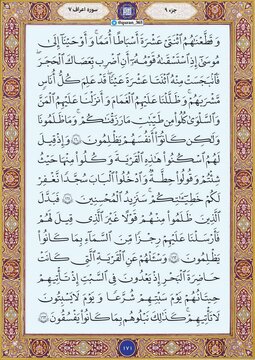 جزء ۹
@quran_365
سورة اعراف ۷
وَقَطَّعْنَٰهُمُ ٱثْنَتَىْ عَشْرَةَ أَسْبَاطًا أُمَمًا وَأَوْحَيْنَآ إِلَىٰ
مُوسَىٰٓ إِذِ ٱسْتَسْقَىٰهُ قَوْمُهُۥٓ أَنِ ٱضْرِب بِّعَصَاكَ ٱلْحَجَرَ
فَٱنۢبَجَسَتْ مِنْهُ ٱثْنَتَا عَشْرَةَ عَيْنًا قَدْ عَلِمَ كُلُّ أُنَاسٍ
مَّشْرَبَهُمْ وَظَلَّلْنَا عَلَيْهِمُ ٱلْغَمَٰمَ وَأَنزَلْنَا عَلَيْهِمُ ٱلْمَنَّ
وَٱلسَّلْوَىٰ كُلُوا۟ مِن طَيِّبَٰتِ مَا رَزَقْنَٰكُمْ وَمَا ظَلَمُونَا
وَلَٰكِن كَانُوٓا۟ أَنفُسَهُمْ يَظْلِمُونَ ۝١٦٠ وَإِذْ قِيلَ
لَهُمُ ٱسْكُنُوا۟ هَٰذِهِ ٱلْقَرْيَةَ وَكُلُوا۟ مِنْهَا حَيْثُ
شِئْتُمْ وَقُولُوا۟ حِطَّةٌ وَٱدْخُلُوا۟ ٱلْبَابَ سُجَّدًا نَّغْفِرْ
لَكُمْ خَطِيٓـَٰٔتِكُمْ سَنَزِيدُ ٱلْمُحْسِنِينَ ۝١٦١ فَبَدَّلَ
ٱلَّذِينَ ظَلَمُوا۟ مِنْهُمْ قَوْلًا غَيْرَ ٱلَّذِى قِيلَ لَهُمْ
فَأَرْسَلْنَا عَلَيْهِمْ رِجْزًا مِّنَ ٱلسَّمَآءِ بِمَا كَانُوا۟
يَظْلِمُونَ ۝١٦٢ وَسْـَٔلْهُمْ عَنِ ٱلْقَرْيَةِ ٱلَّتِى كَانَتْ
حَاضِرَةَ ٱلْبَحْرِ إِذْ يَعْدُونَ فِى ٱلسَّبْتِ إِذْ تَأْتِيهِمْ
حِيتَانُهُمْ يَوْمَ سَبْتِهِمْ شُرَّعًا وَيَوْمَ لَا يَسْبِتُونَ
لَا تَأْتِيهِمْ كَذَٰلِكَ نَبْلُوهُم بِمَا كَانُوا۟ يَفْسُقُونَ ۝١٦٣
۱۷۱